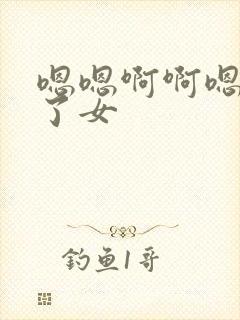 嗯嗯啊啊嗯
了女
钓鱼1哥